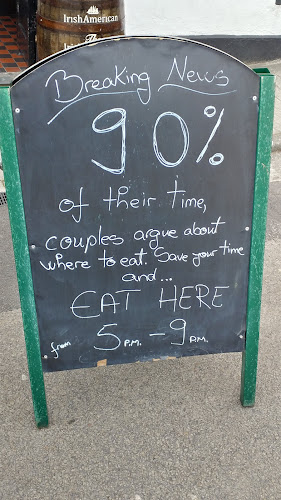 IrishAmerican
The
Breaking News
90%
of their time,
couples argue about
where to eat. Save your time
and...
EAT HERE
from 5 P.M. - 9 P.M.